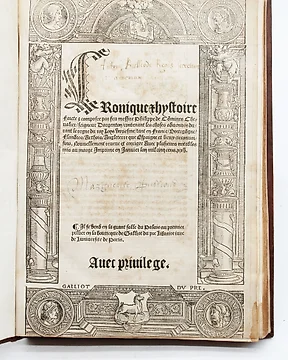 CRonique & hystoire
faicte & composee par feu messire Philippe de Comines Che-
ualier, seigneur Dargenton, contenant les choses aduenues du-
rant le regne du roy Loys unziesme tant en France, Bourgongne,
Flandres, Arthois, Angleterre que Espaigne et lieux circonuoi-
sins, nouuellement reueue et corrigee Auec plusieurs notables
mis au marge Imprime en
Marguerite
¶ Il se vend en la grant salle du Palais au premier
pillier en la boutique de Galliot du pre libraire iure
de luniuersite de Paris.
Auec priuilege.
GALLIOT DV PRE.